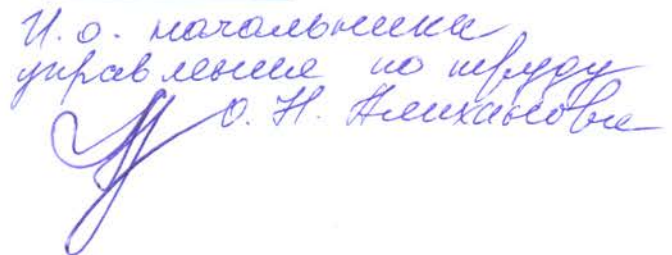 И.о. начальника
управления по труду
О.Н. Алиханова